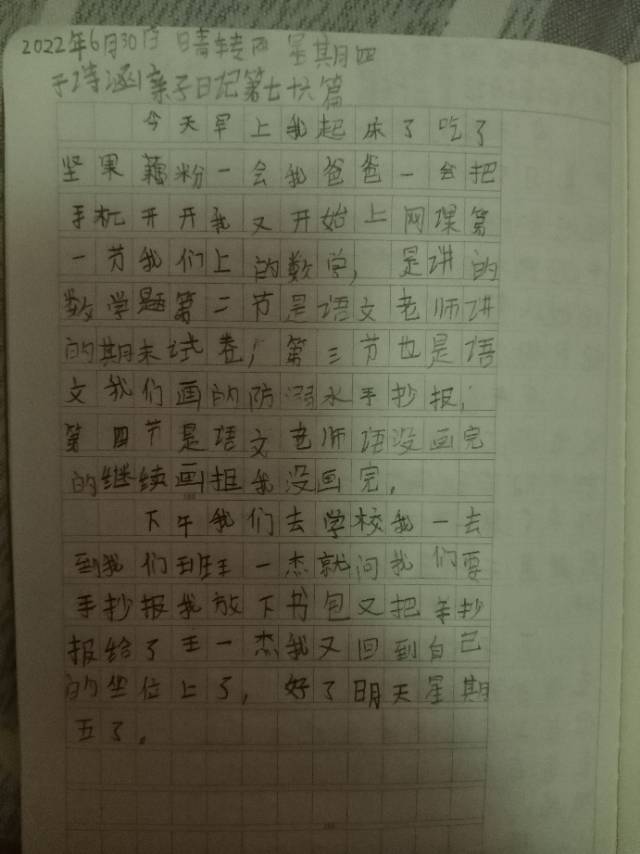 2022年6月30日 日晴转雨 星期四
于诗涵亲子日记第七十六篇
今天早上我起床了吃了
坚果藕粉一会我爸爸一会把
手机开开我又开始上网课第
一节我们上的数学，是讲的
数学题第二节是语文老师讲
的期末试卷，第三节也是语
文我们画的防溺水手抄报，
第四节是语文老师语没画完
的继续画担我没画完。
下午我们去学校我一去
到我们班王一杰就问我们要
手抄报我放下书包又把手抄
报给了王一杰我又回到自己
的坐位上了，好了明天星期
五了。